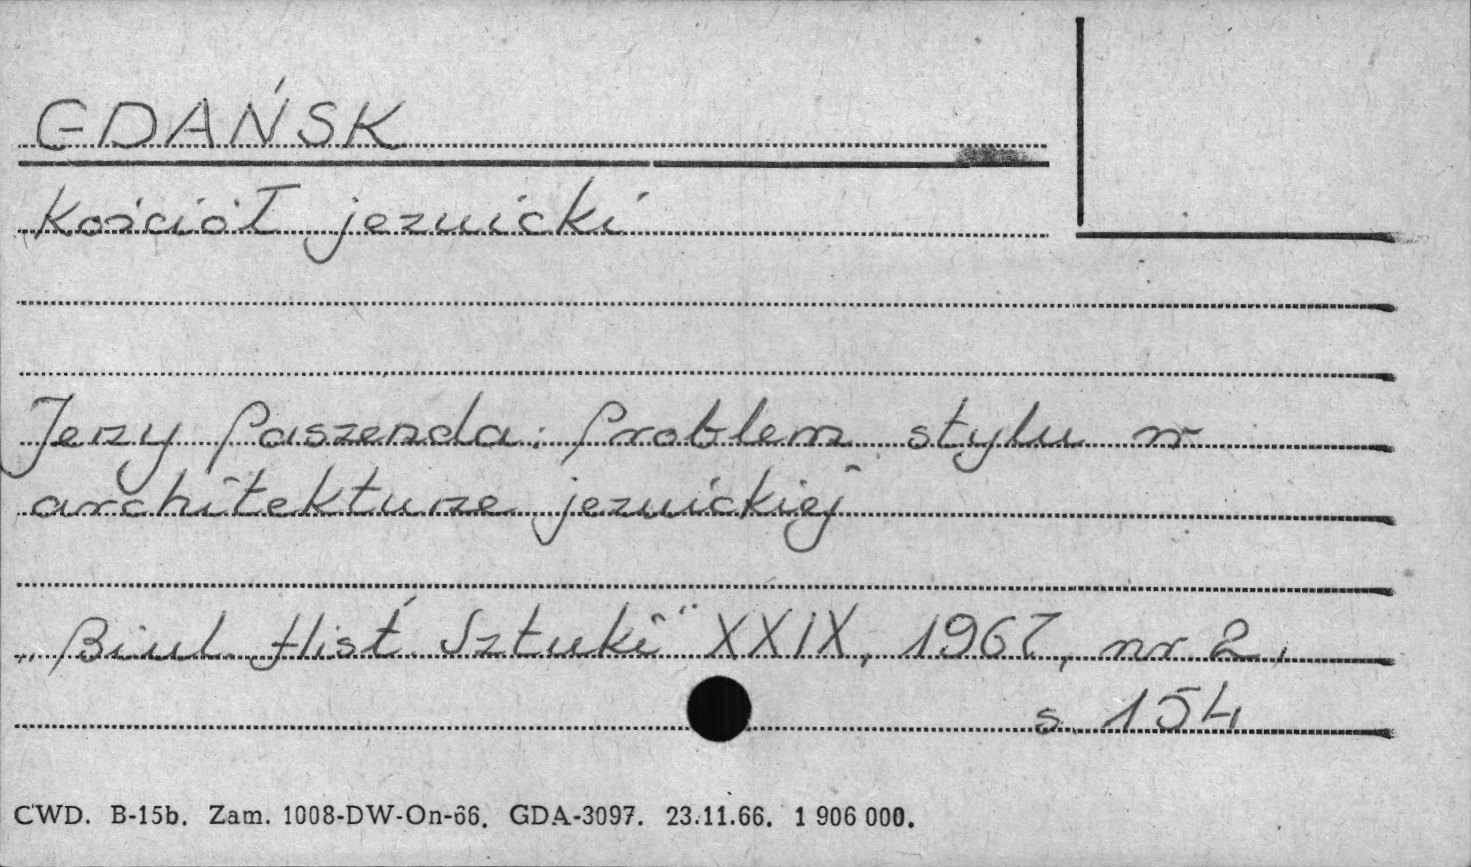 GDAŃSK
Kościół jezuicki
Jerzy Paszenda: Problem stylu w
architekturze jezuickiej
„Biul. Hist. Sztuki" XXIX, 1967, nr 2,
s. 154
CWD. B-15b. Zam. 1008-DW-On-66. GDA-3097. 23.11.66. 1 906 000.